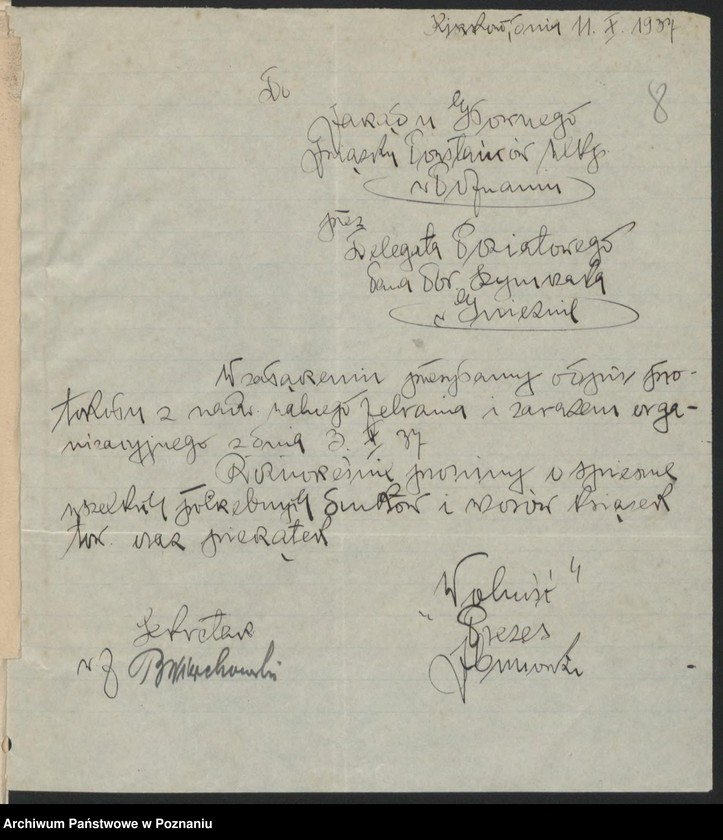 dnia 11. X. 1937
8
Do
Zarządu Głównego
Związku Powstańców Wlkp.
w Poznaniu
przez
Delegata Powiatowego
Pana Por. Szymczaka
w Gnieźnie
W załączeniu przesyłamy odpis pro-
tokółu z nadz. walnego Zebrania i zarazem orga-
nizacyjnego z dnia 3. X 37
Równocześnie prosimy o
wszelkich potrzebnych druków i wzorów książek
tow. oraz pieczątek
"Wolność"
Sekretarz
Prezes
w z
Archiwum Państwowe w Poznaniu